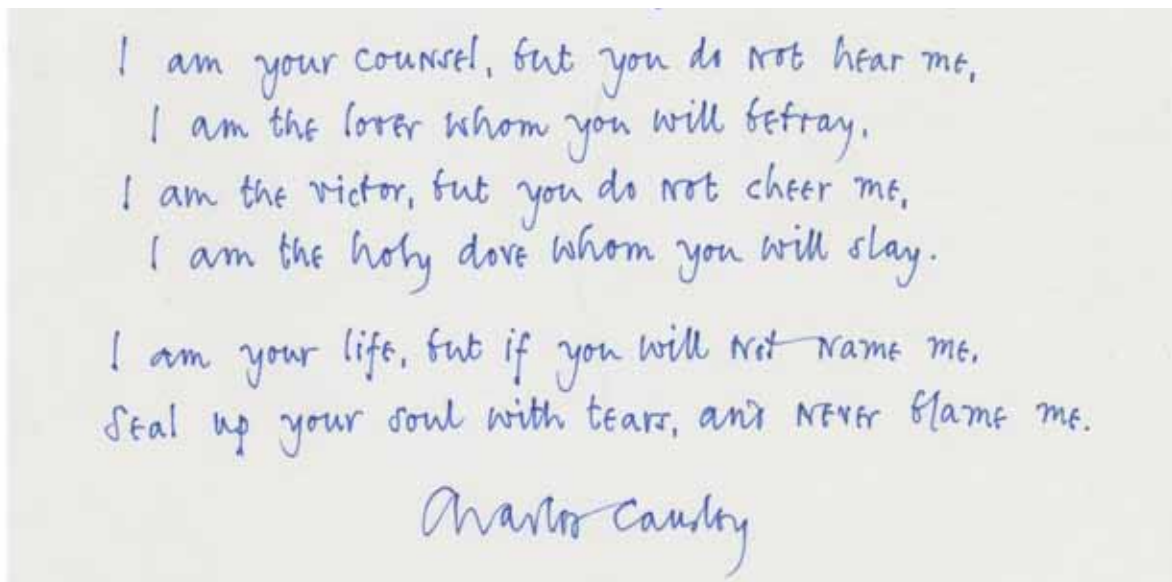 I am your counsel, but you do not hear me,
I am the lover whom you will betray,
I am the victor, but you do not cheer me,
I am the holy dove whom you will slay.
I am your life, but if you will not name me,
Seal up your soul with tears, and never blame me.
Charles Causley